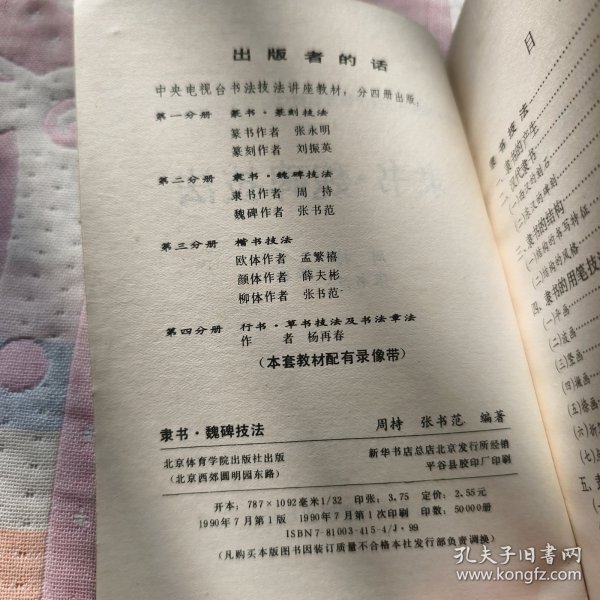 出版者的话
中央电视台书法技法讲座教材，分四册出版，
第一分册 篆书·篆刻技法
篆书作者 张永明
篆刻作者 刘振英
第二分册 隶书·魏碑技法
隶书作者 周持
魏碑作者 张书范
第三分册 楷书技法
欧体作者 孟繁禧
颜体作者 薛夫彬
柳体作者 张书范
第四分册 行书·草书技法及书法章法
作者 杨再春
（本套教材配有录像带）
隶书·魏碑技法
周持 张书范 编著
北京体育学院出版社出版
（北京西郊圆明园东路）
新华书店总店北京发行所经销
平谷县胶印厂印刷
开本：787×1092毫米1/32 印张：3.75 定价：2.55元
1990年7月第1版 1990年7月第1次印刷 印数：50000册
ISBN7-81003-415-4/J·99
（凡购买本版图书因装订质量不合格本社发行部负责调换）
目
隶书技法
一、隶书的产生
二、汉代隶书
三、隶书的结构
(一)结构的书写特征
(二)结构的风格
四、隶书的用笔技
(一)平画
(二)波画
(三)竖画
(四)撇画
(五)捺画
(六)折
(七)
五、
孔夫子旧书网
www.kongfz.com